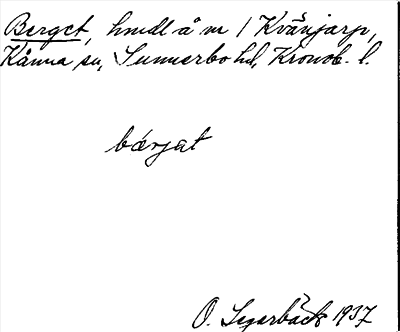 Berget, hmdl å nr 1 Kvänjarp,
Kånna sn, Sunnerbo hd, Kronob. l.
bærjat
O. Segerbäck 1937